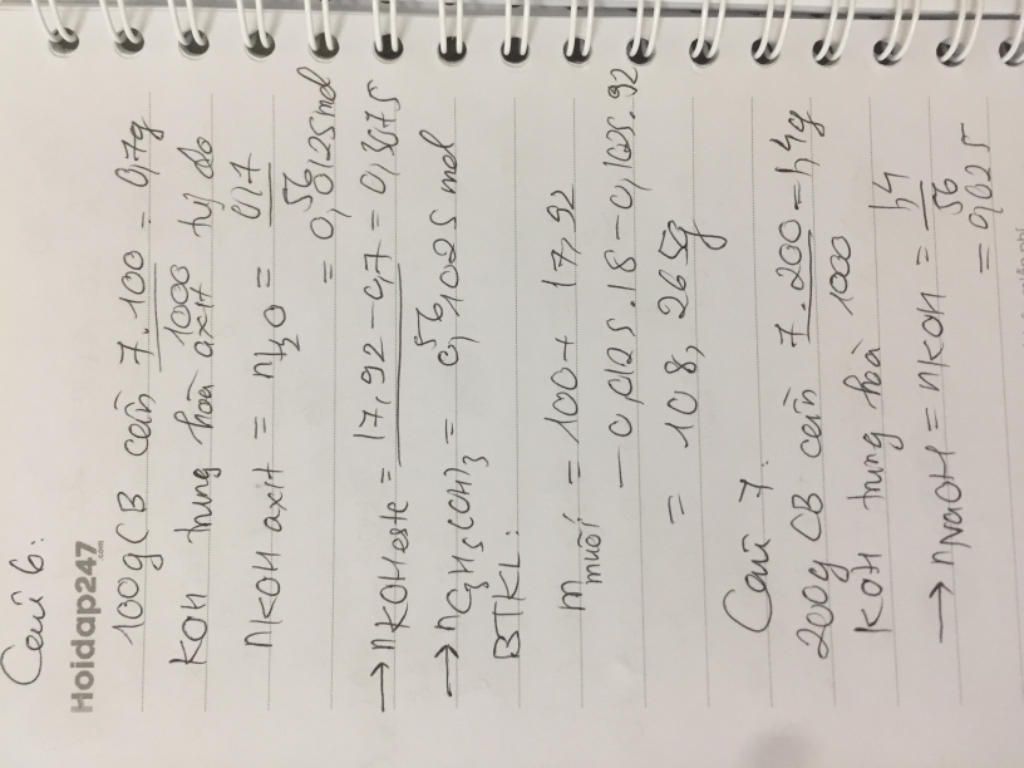 Câu 6:
Hoidap247.com
100g CB cần 7.100/1000 = 0,7g
KOH trung hoà axit tự do
nKOH axit = nH2O = 0,7/56
= 0,0125mol
→ nKOH este = 17,92-0,7/56 = 0,3075
→ nC3H5(OH)3 = 0,1025 mol
BTKL:
m muối = 100+ 17,92
- 0,0125.18 - 0,1025.92
= 108,265g
Câu 7:
200g CB cần 7.200/1000 = 1,4g
KOH trung hoà
→ nNaOH = nKOH = 1,4/56
= 0,025